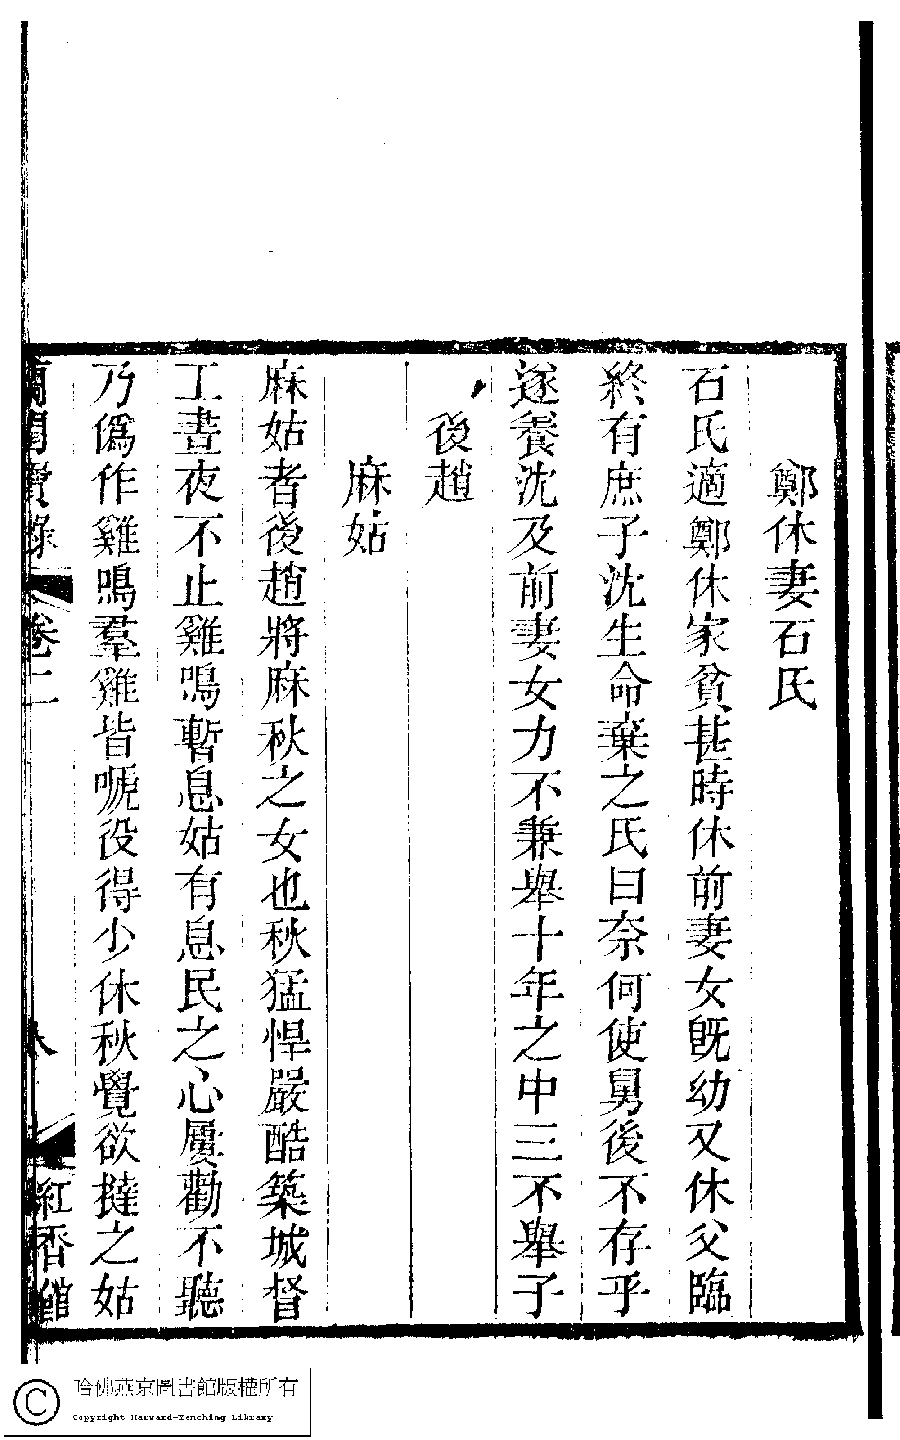 鄭休妻石氏
石氏適鄭休家貧甚時休前妻女旣幼又休父臨
終有庶子沈生命棄之氏曰奈何使舅後不存乎
遂養沈及前妻女力不兼舉十年之中三不舉子
後趙
麻姑
麻姑者後趙將麻秋之女也秋猛悍嚴酷築城督
工晝夜不止雞鳴暫息姑有息民之心屢勸不聽
乃僞作雞鳴羣雞皆嗁役得少休秋覺欲撻之姑
蘭閨寶錄 卷二 紅香館
哈佛燕京圖書館版權所有
Copyright Harvard-Yenching Library